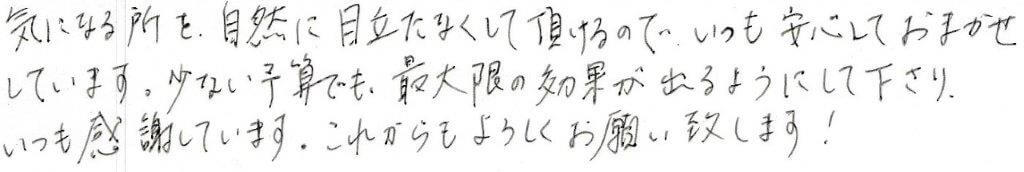 気になる所を、自然に目立たなくして頂けるので、いつも安心しておまかせ
しています。少ない予算でも、最大限の効果が出るようにして下さり、
いつも感謝しています。これからもよろしくお願い致します!